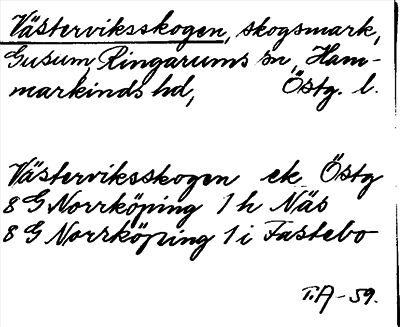 Västerviksskogen, skogsmark,
Gusum, Ringarums sn, Ham-
markinds hd, Östg. l.
Västerviksskogen ek. Östg
8 G Norrköping 1 h Näs
8 G Norrköping 1 i Fastebo
T.A - 59.